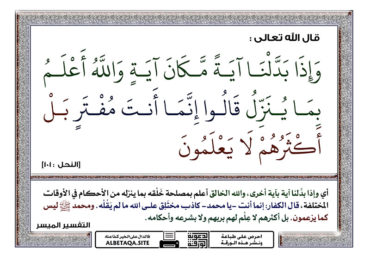 قال الله تعالى :
وَإِذَا بَدَّلْنَا آيَةً مَّكَانَ آيَةٍ وَاللَّهُ أَعْلَمُ
بِمَا يُنَزِّلُ قَالُوا إِنَّمَا أَنتَ مُفْتَرٍ بَلْ
أَكْثَرُهُمْ لَا يَعْلَمُونَ
[النحل : ١٠١]
أي وإذا بدَّلنا آية بآية أخرى، والله الخالق أعلم بمصلحة خَلْقه بما ينزله من الأحكام في الأوقات
المختلفة، قال الكفار: إنما أنت -يا محمد- كاذب مختلِق على الله ما لم يَقُلْه. ومحمد ﷺ ليس
كما يزعمون. بل أكثرهم لا عِلْم لهم بربهم ولا بشرعه وأحكامه.
التفسير الميسر
احرص على طباعة
ونشر هذه الورقة
ALBETAQA.SITE